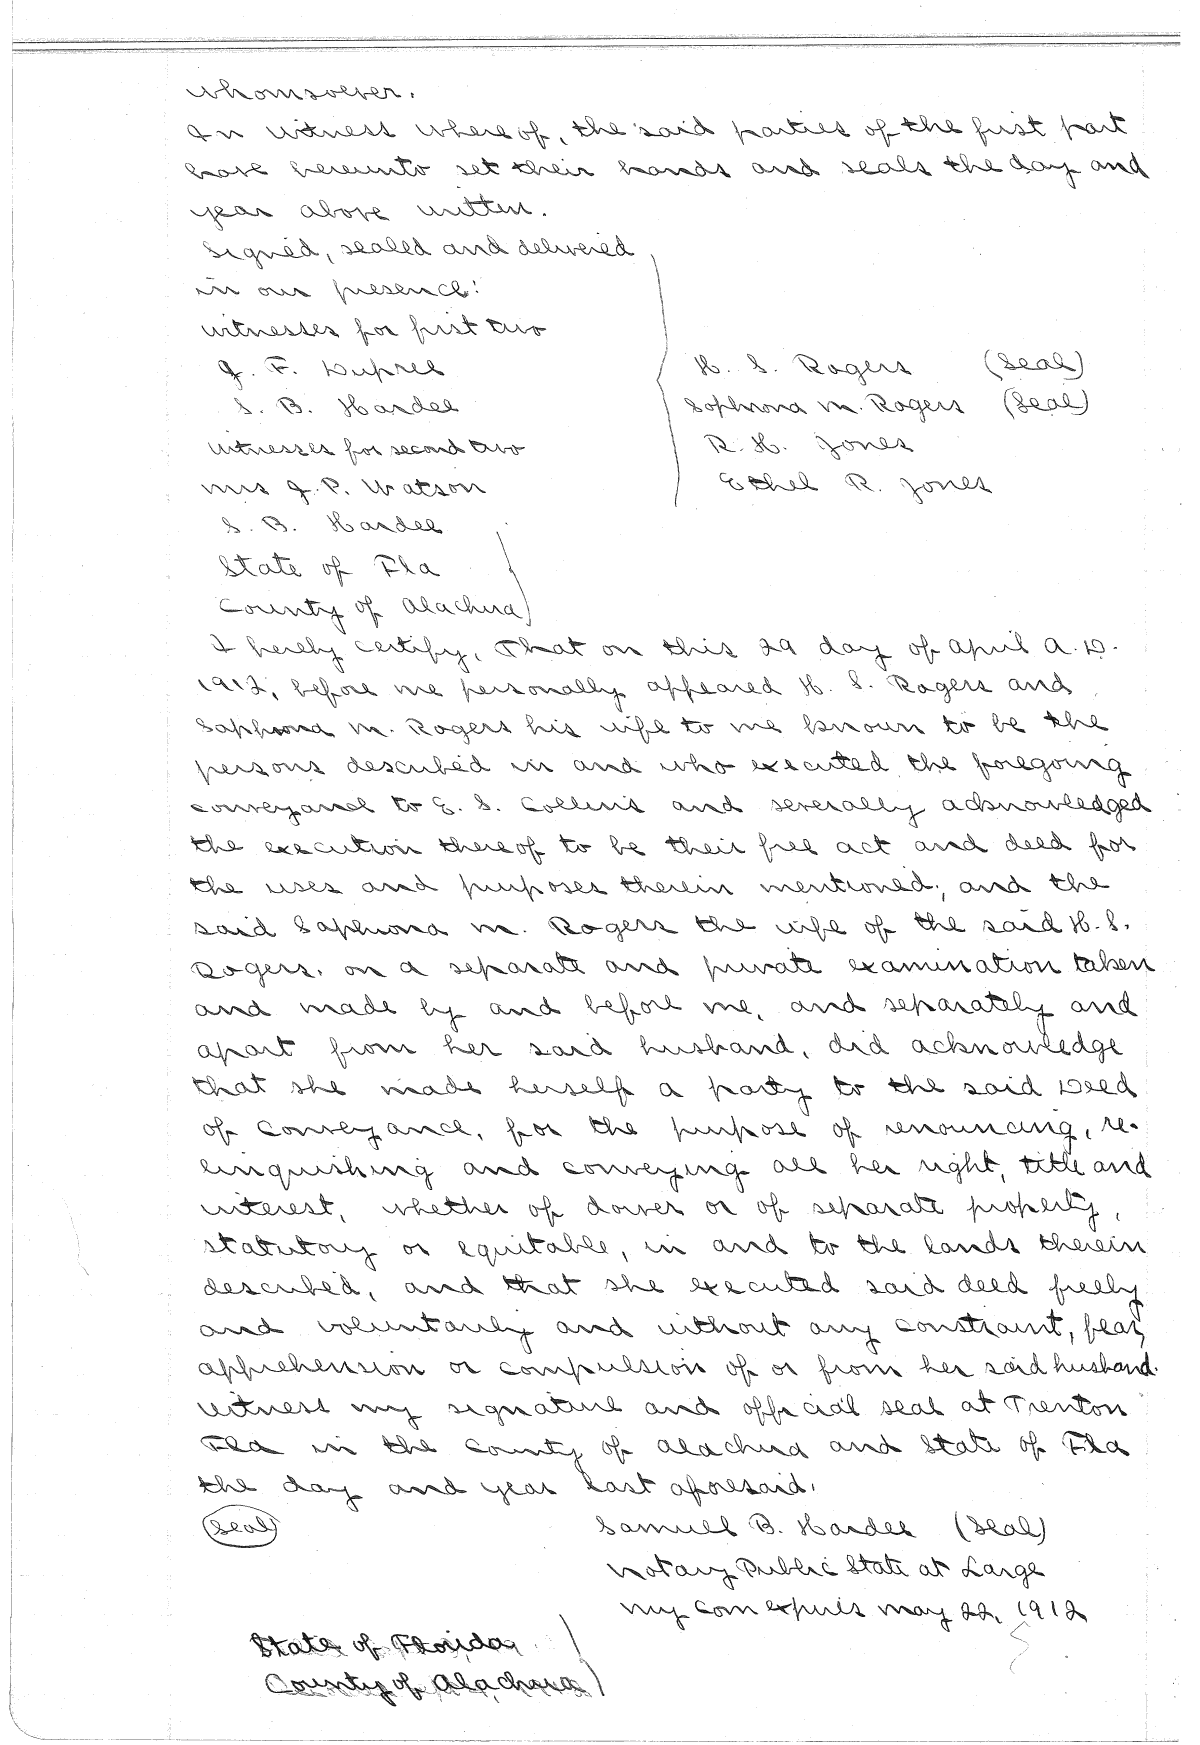 whomsoever.
In witness whereof, the said parties of the first part
have hereunto set their hands and seals the day and
year above written.
Signed, sealed and delivered
in our presence:
witnesses for first two
J. F. Dupree
H. S. Rogers (Seal)
S. B. Hardee
Sophrona M. Rogers (Seal)
witnesses for second two
R. H. Jones
Mrs J. P. Watson
Ethel R. Jones
S. B. Hardee
State of Fla
County of Alachua
I hereby certify, That on this 29 day of April A.D.
1912, before me personally appeared H. S. Rogers and
Saphrona M. Rogers his wife to me known to be the
persons described in and who executed the foregoing
conveyance to E. S. Collins and severally acknowledged
the execution thereof to be their free act and deed for
the uses and purposes therein mentioned; and the
said Saphrona M. Rogers the wife of the said H. S.
Rogers, on a separate and private examination taken
and made by and before me, and separately and
apart from her said husband, did acknowledge
that she made herself a party to the said Deed
of conveyance, for the purpose of renouncing, re-
linquishing and conveying all her right, title and
interest, whether of dower or of separate property,
statutory or equitable, in and to the lands therein
described, and that she executed said deed freely
and voluntarily and without any constraint, fear,
apprehension or compulsion of or from her said husband.
witness my signature and official seal at Trenton
Fla in the County of Alachua and State of Fla
the day and year last aforesaid.
(Seal)
Samuel B. Hardee (Seal)
Notary Public State at Large
My com expires May 22, 1912
State of Florida
County of Alachua